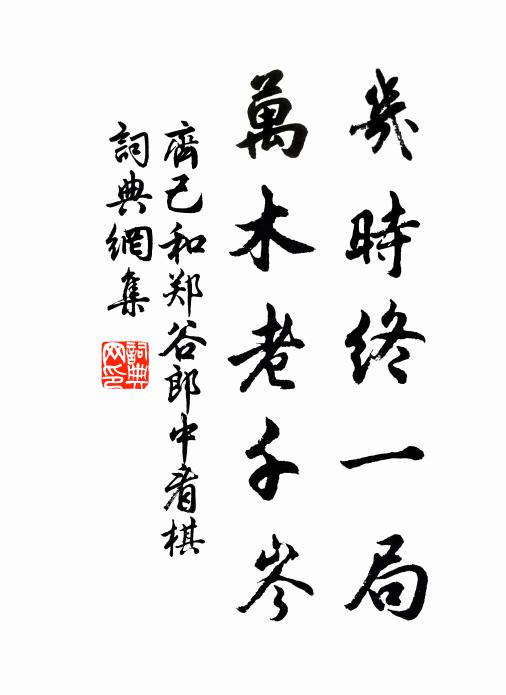 幾時終一局
萬木老千岑
齊己和郑谷郎中看棋
詞典網集
詞典网印